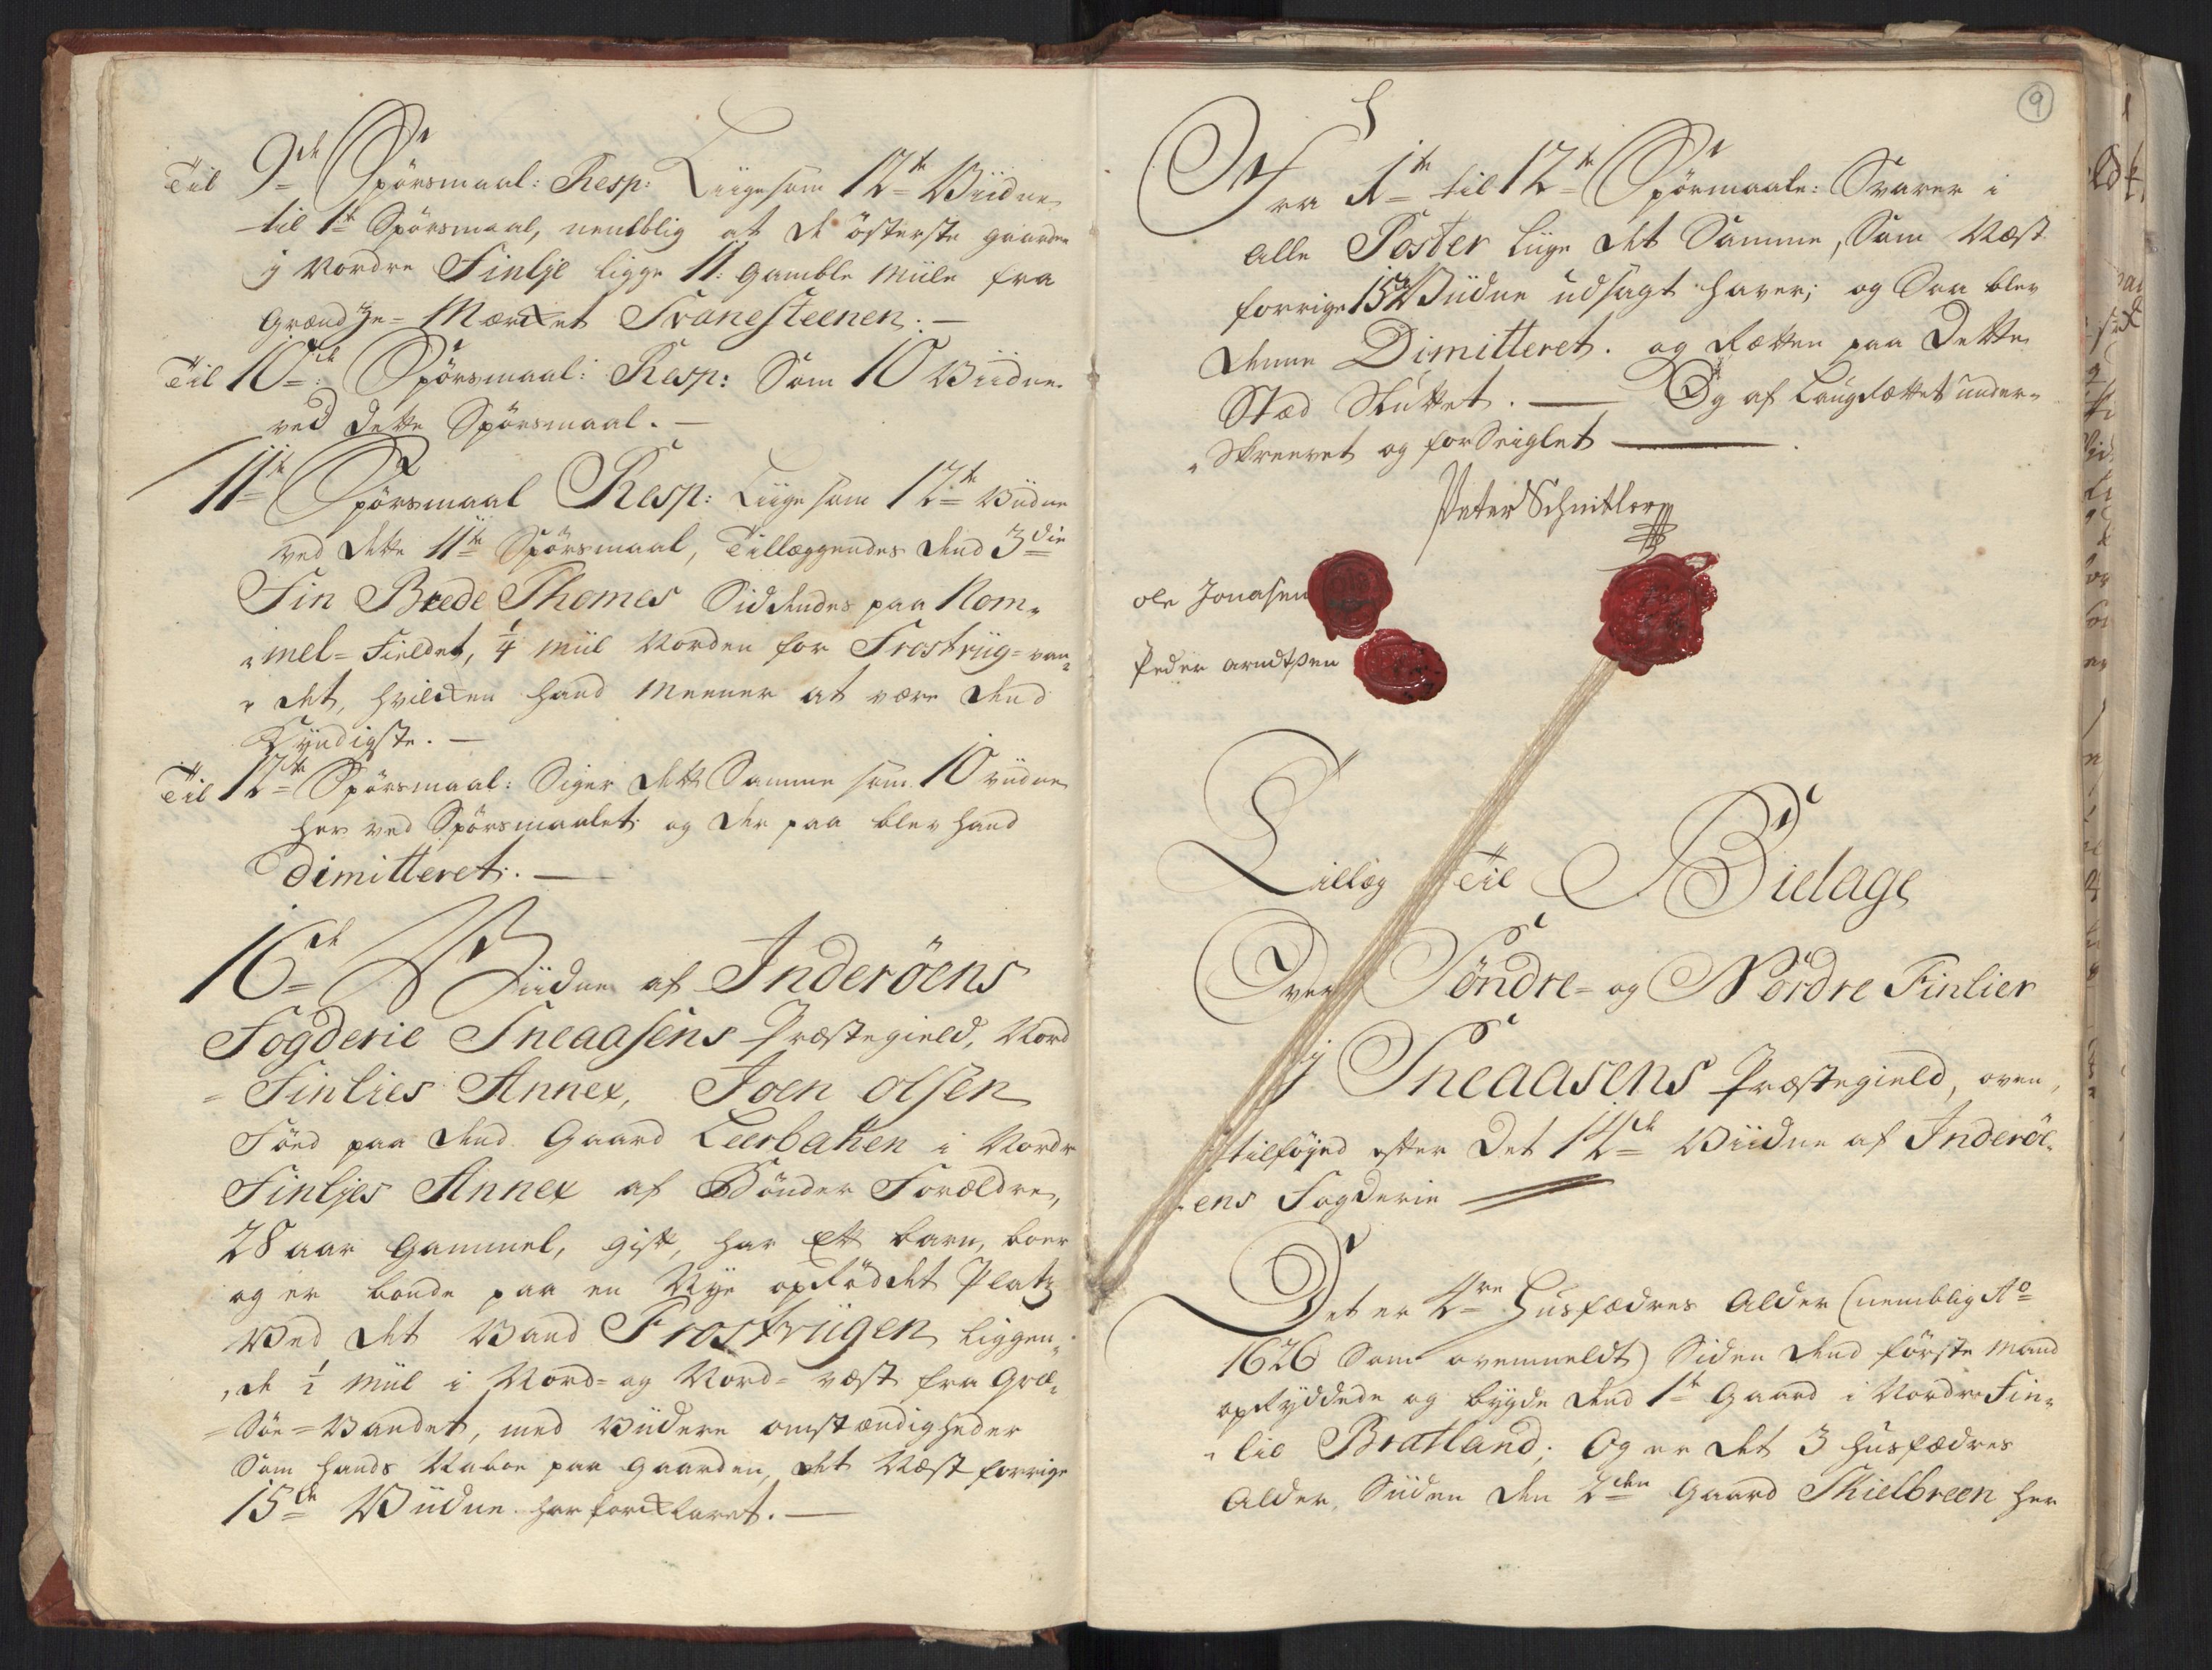 Til 9de Spörsmaal: Resp: Liigesom 12te Viidne
til 1te Spörsmaal, nemblig at de österste gaarde
j Nordre Finlje ligge 11: gamble Miile fra
Grændze-Mærket Tranesteenen: —
Til 10de: Spörsmaal: Resp: Som 10 Viidne
ved dette Spörsmaal. —
11te Spörsmaal Resp: Liigesom 12te Viidne
ved dette 11te Spörsmaal, Tillæggendes dend 3die
Fin Brede Thomes Siddendes paa Rom-
mel-Fieldet, 1/4 Miil Norden for Frostviig-van-
det, hvilken hand Meener at være dend
Kyndigste. —
Til 12te Spörsmaal: Siger dett Samme som 10 viidne
her ved Spörsmaalet: og der paa blev hand
Dimitteret. —
16de Viidne af Inderöens
Fogderie Sneaasens Præstegield, Nord
-Finlies Annex, Joen Olsen
Föed paa dend Gaard Leerbaken i Nordr
Finljes Annex af Bönder Forældre,
28 aar gammel, gift, har Ett barn, boer
og er bonde paa en Nye opRöddet Platz
Ved det Vand Frostviigen liggen-
de 1/2 Miil i Nord- og Nord-væst fra Qvæ-
-Söe-Vandet, med Viidere omstændigheder
Som hands Naboe paa gaarden, det Næst forrige
15de Viidne har forklaret. —
9
Fra 1te til 12te Spörmaale: Svarer i
alle Poster liige det Samme, Som Næst
forrige 15de Viidne udsagt haver; og Saa blev
denne Dimitteret. og Rætten paa Dette
Stæd Sluttet. — Og af LaugRættet under-
Skreevet og forSeiglet —
Peter Schnitler
ole Jonasen
Peder arndtßen
Tillæg Til Bielage
Over Söndre- og Nordre Finlier
j Sneaasens Præstegield, oven
tilföjed efter Det 14de Viidne af Inderöe-
ens Fogderie
Det er 4re Huusfædres Alder (nemblig Ao
1626 Som ovenmeldt) Siden dend förste Mand
opRyddede og bygde dend 1te Gaard i Nordre Fin-
lie Bratland; Og er det 3 Huusfædres
Alder, Siiden den 2den Gaard Skielbreen her